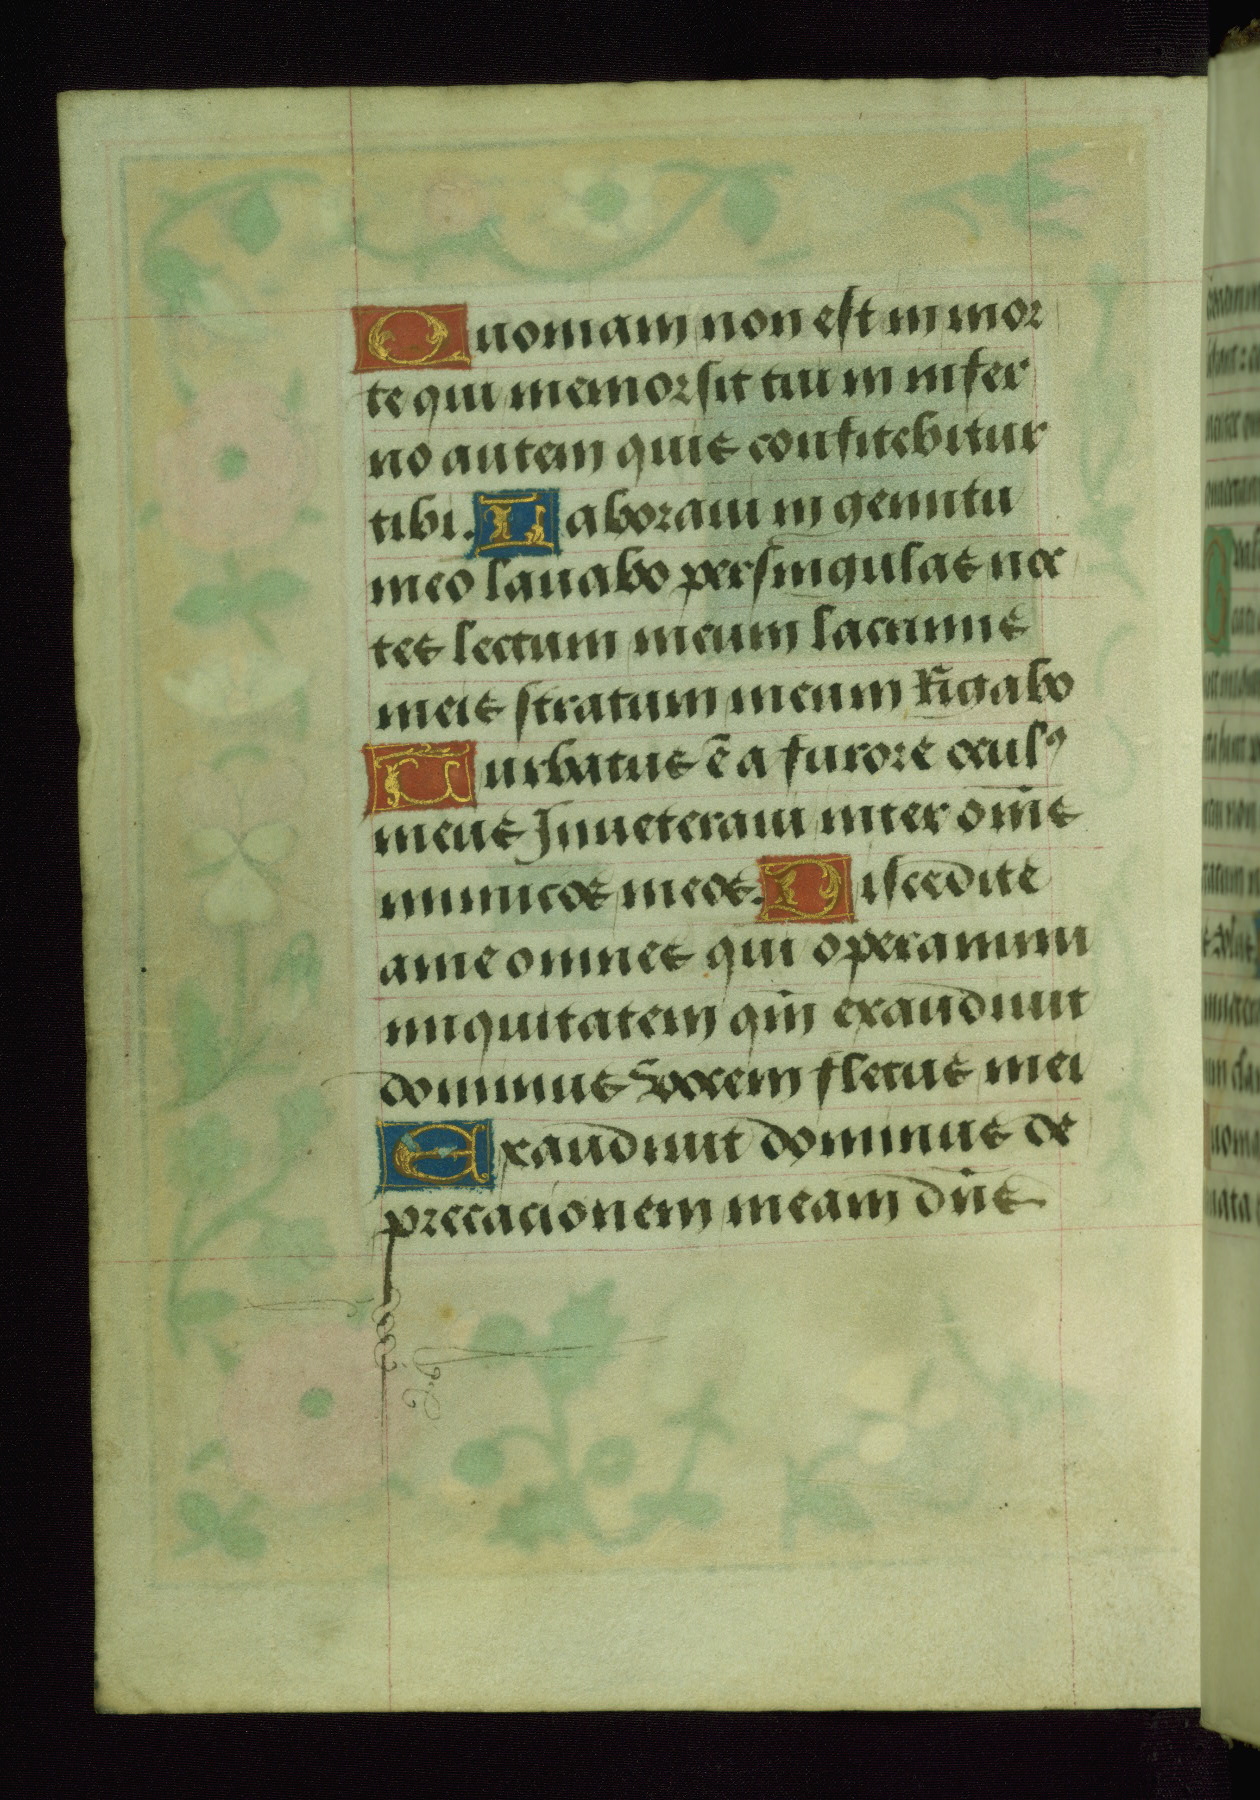 Quoniam non est in mor
te qui memor sit tui in infer
no autem quis confitebitur
tibi. Laboraui in gemitu
meo lauabo per singulas noc
tes lectum meum lacrimis
meis stratum meum Rigabo
Turbatus ē a furore oculꝰ
meus Inueteraui inter om̄s
inimicos meos. Discedite
ame omnes qui operamini
iniquitatem qm̄ exaudiuit
dominus Vocem fletus mei
Exaudiuit dominus de
precacionem meam dn̄s